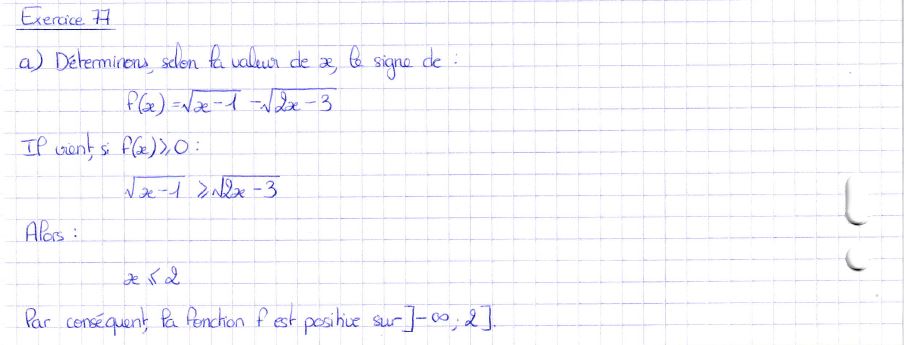 Exercice 77
a) Déterminons, selon la valeur de x, le signe de :
f(x) = √(x-1) - √(2x-3)
Il vient, si f(x) ⩾ 0 :
√(x-1) ⩾ √(2x-3)
Alors :
x ⩽ 2
Par conséquent, la fonction f est positive sur ]-∞; 2].